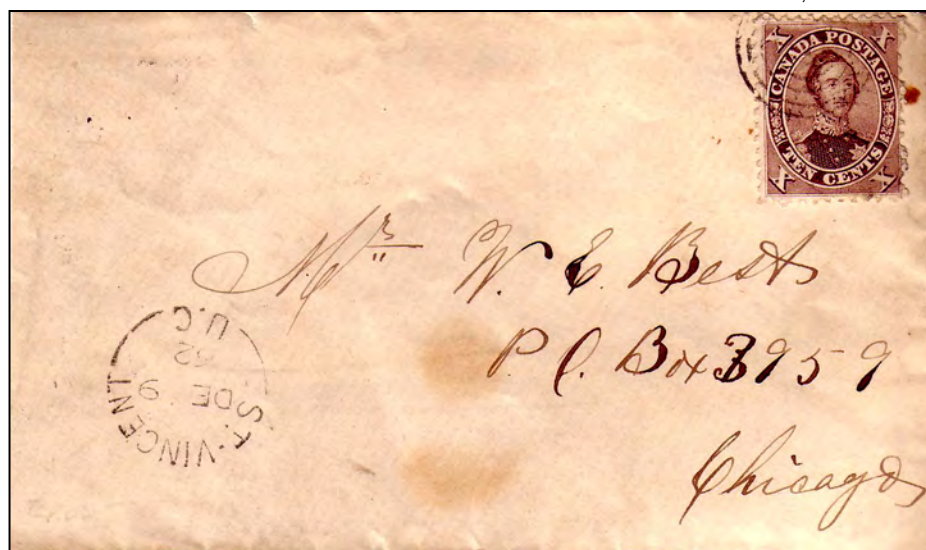 X X
CANADA POSTAGE
TEN CENTS
X X
Mr W. E. Best
P. O. Box 3959
Chicago
ST. VINCENT
DE 9
62
U.C